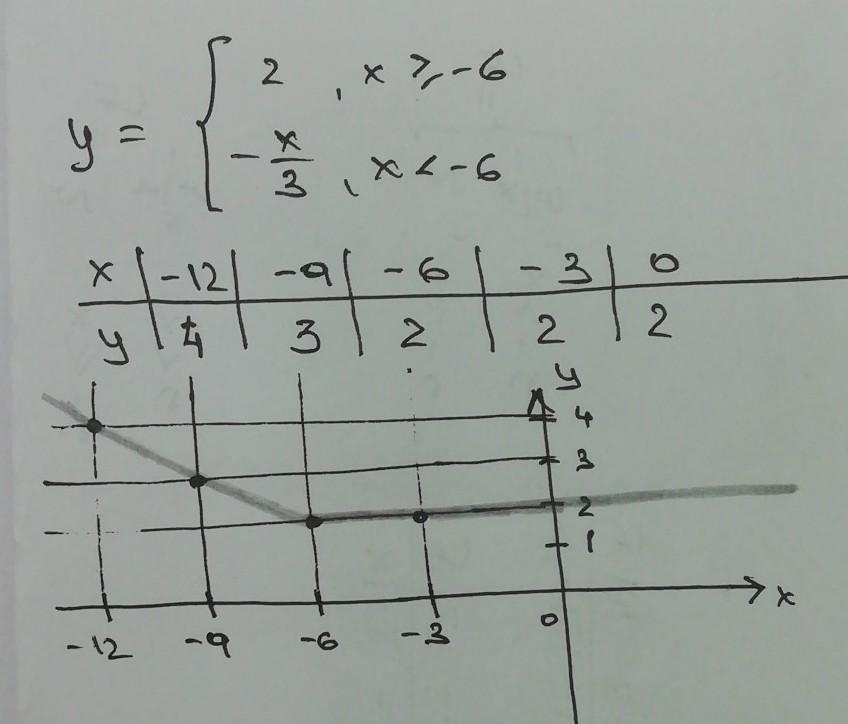 y = { 2 , x ≥ -6
-x/3 , x < -6
x | -12 | -9 | -6 | -3 | 0
y | 4 | 3 | 2 | 2 | 2
y
4
3
2
1
x
-12 -9 -6 -3 0